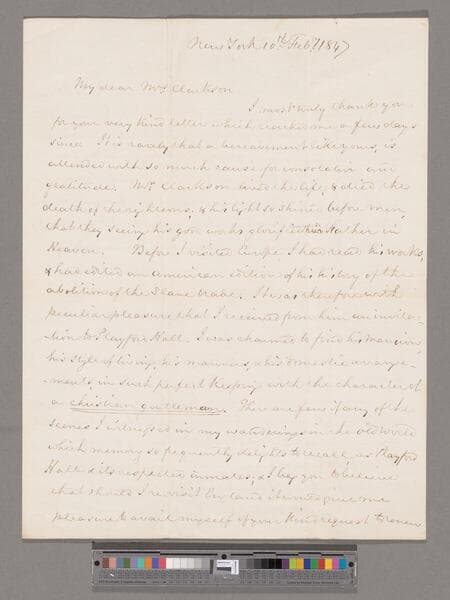 New York 10th Feby 1847
My dear Mrs Clarkson
I most truly thank you
for your very kind letter which reached me a few days
since. It is rarely that a bereavement like yours, is
attended with so much cause for consolation and
gratitude. Mr. Clarkson lived the life, & died the
death of the righteous; & his light so shined before men,
that they seeing his good works glorified his Father in
Heaven. Before I visited Europe I had read his works,
& had edited an American edition of his history of the
abolition of the Slave trade. It was therefore with
peculiar pleasure that I received from him an invita-
tion to Playford Hall. I was charmed to find his mansion,
his style of living, his manners, & his domestic arrange-
ments in such perfect keeping with the character of
a christian gentleman. There are few if any of the
scenes I witnessed in my wanderings in the old world
which memory so frequently delights to recall as Playford
Hall & its respected inmates; & I beg you to believe
that should I revisit England it would give me
pleasure to avail myself of your kind request to renew